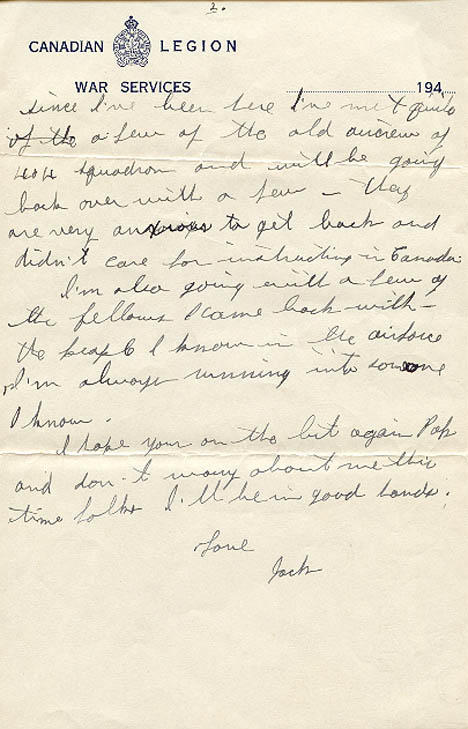 2.
CANADIAN LEGION
WAR SERVICES 194
since I've been here I've met quite
of the a few of the old aircrew of
404 squadron and will be going
back over with a few - They
are very anxious to get back and
didn't care for instructing in Canada.
I'm also going with a few of
the fellows I came back with -
the people I know in the airforce
I'm always running into someone
I know.
I hope your on the bit again Pop
and don't worry about me this
time folks I'll be in good hands.
Love
Jack